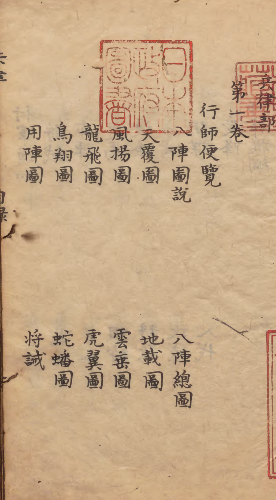 兵律部
第一卷
行師便覽
八陣圖説
八陣總圖
天覆圖
地載圖
風揚圖
雲垂圖
龍飛圖
虎翼圖
鳥翔圖
蛇蟠圖
用陣圖
将誡
日本政府圖書